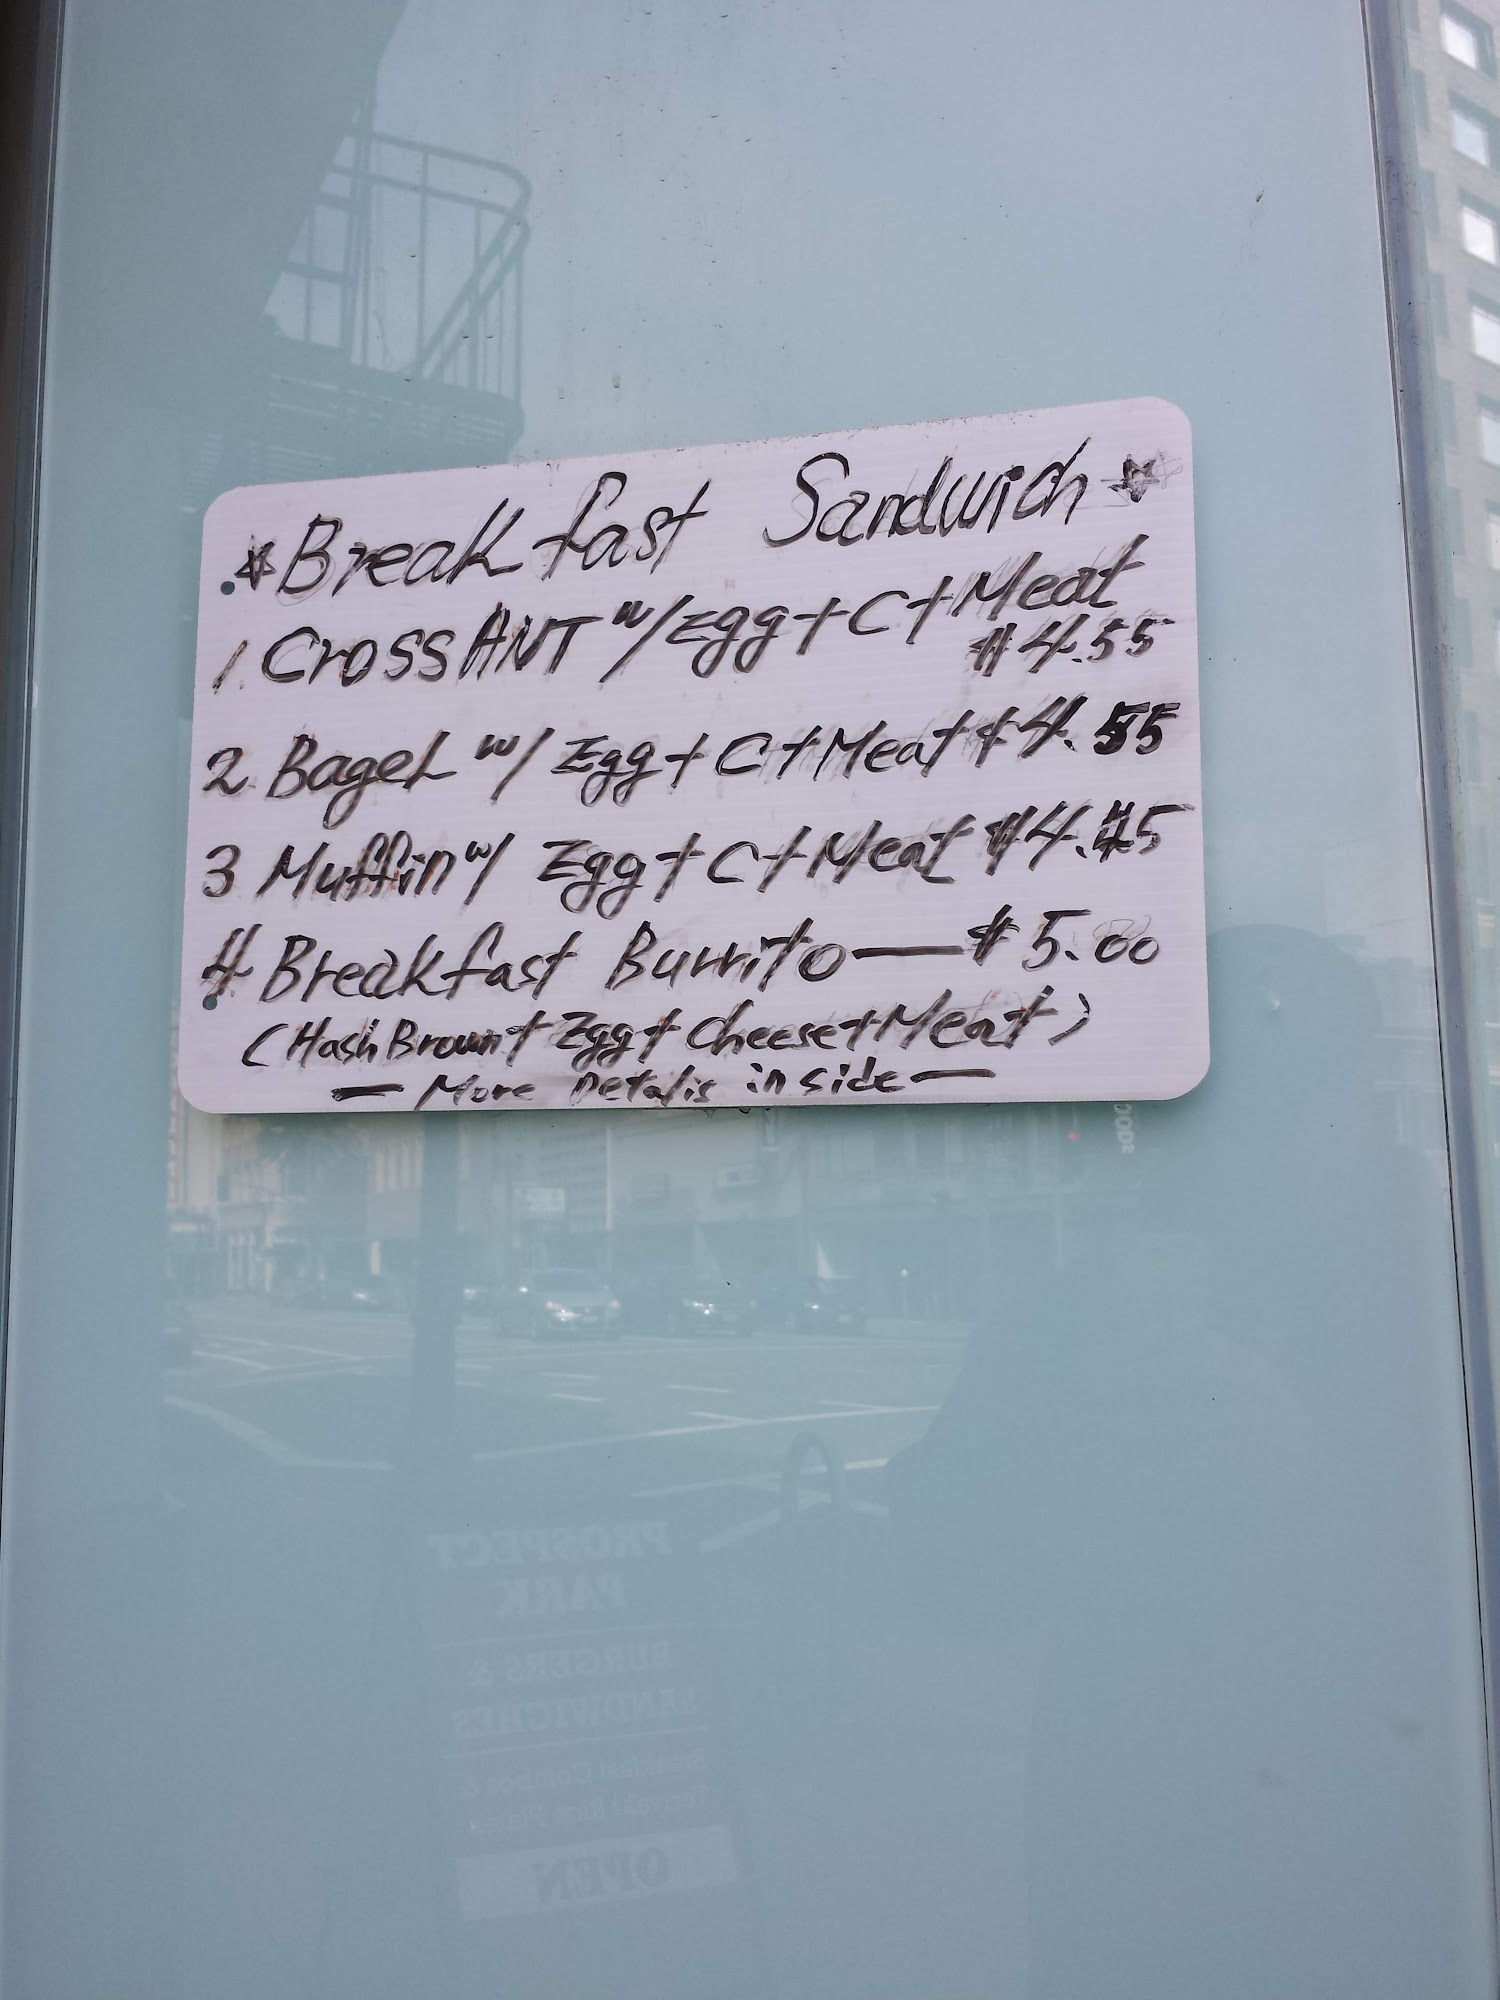 ☆ Breakfast Sandwich ☆
1. CrossANT w/ Egg + C + Meat
$4.55
2 Bagel w/ Egg + C + Meat $4.55
3 Muffin w/ Egg + C + Meat $4.45
4 Breakfast Burrito — $5.00
(Hash Brown + Egg + Cheese + Meat)
— More Detalis inside —
PROSPECT
PARK
BURGERS &
SANDWICHES
Breakfast Combos &
Teriyaki Rice Plates
OPEN